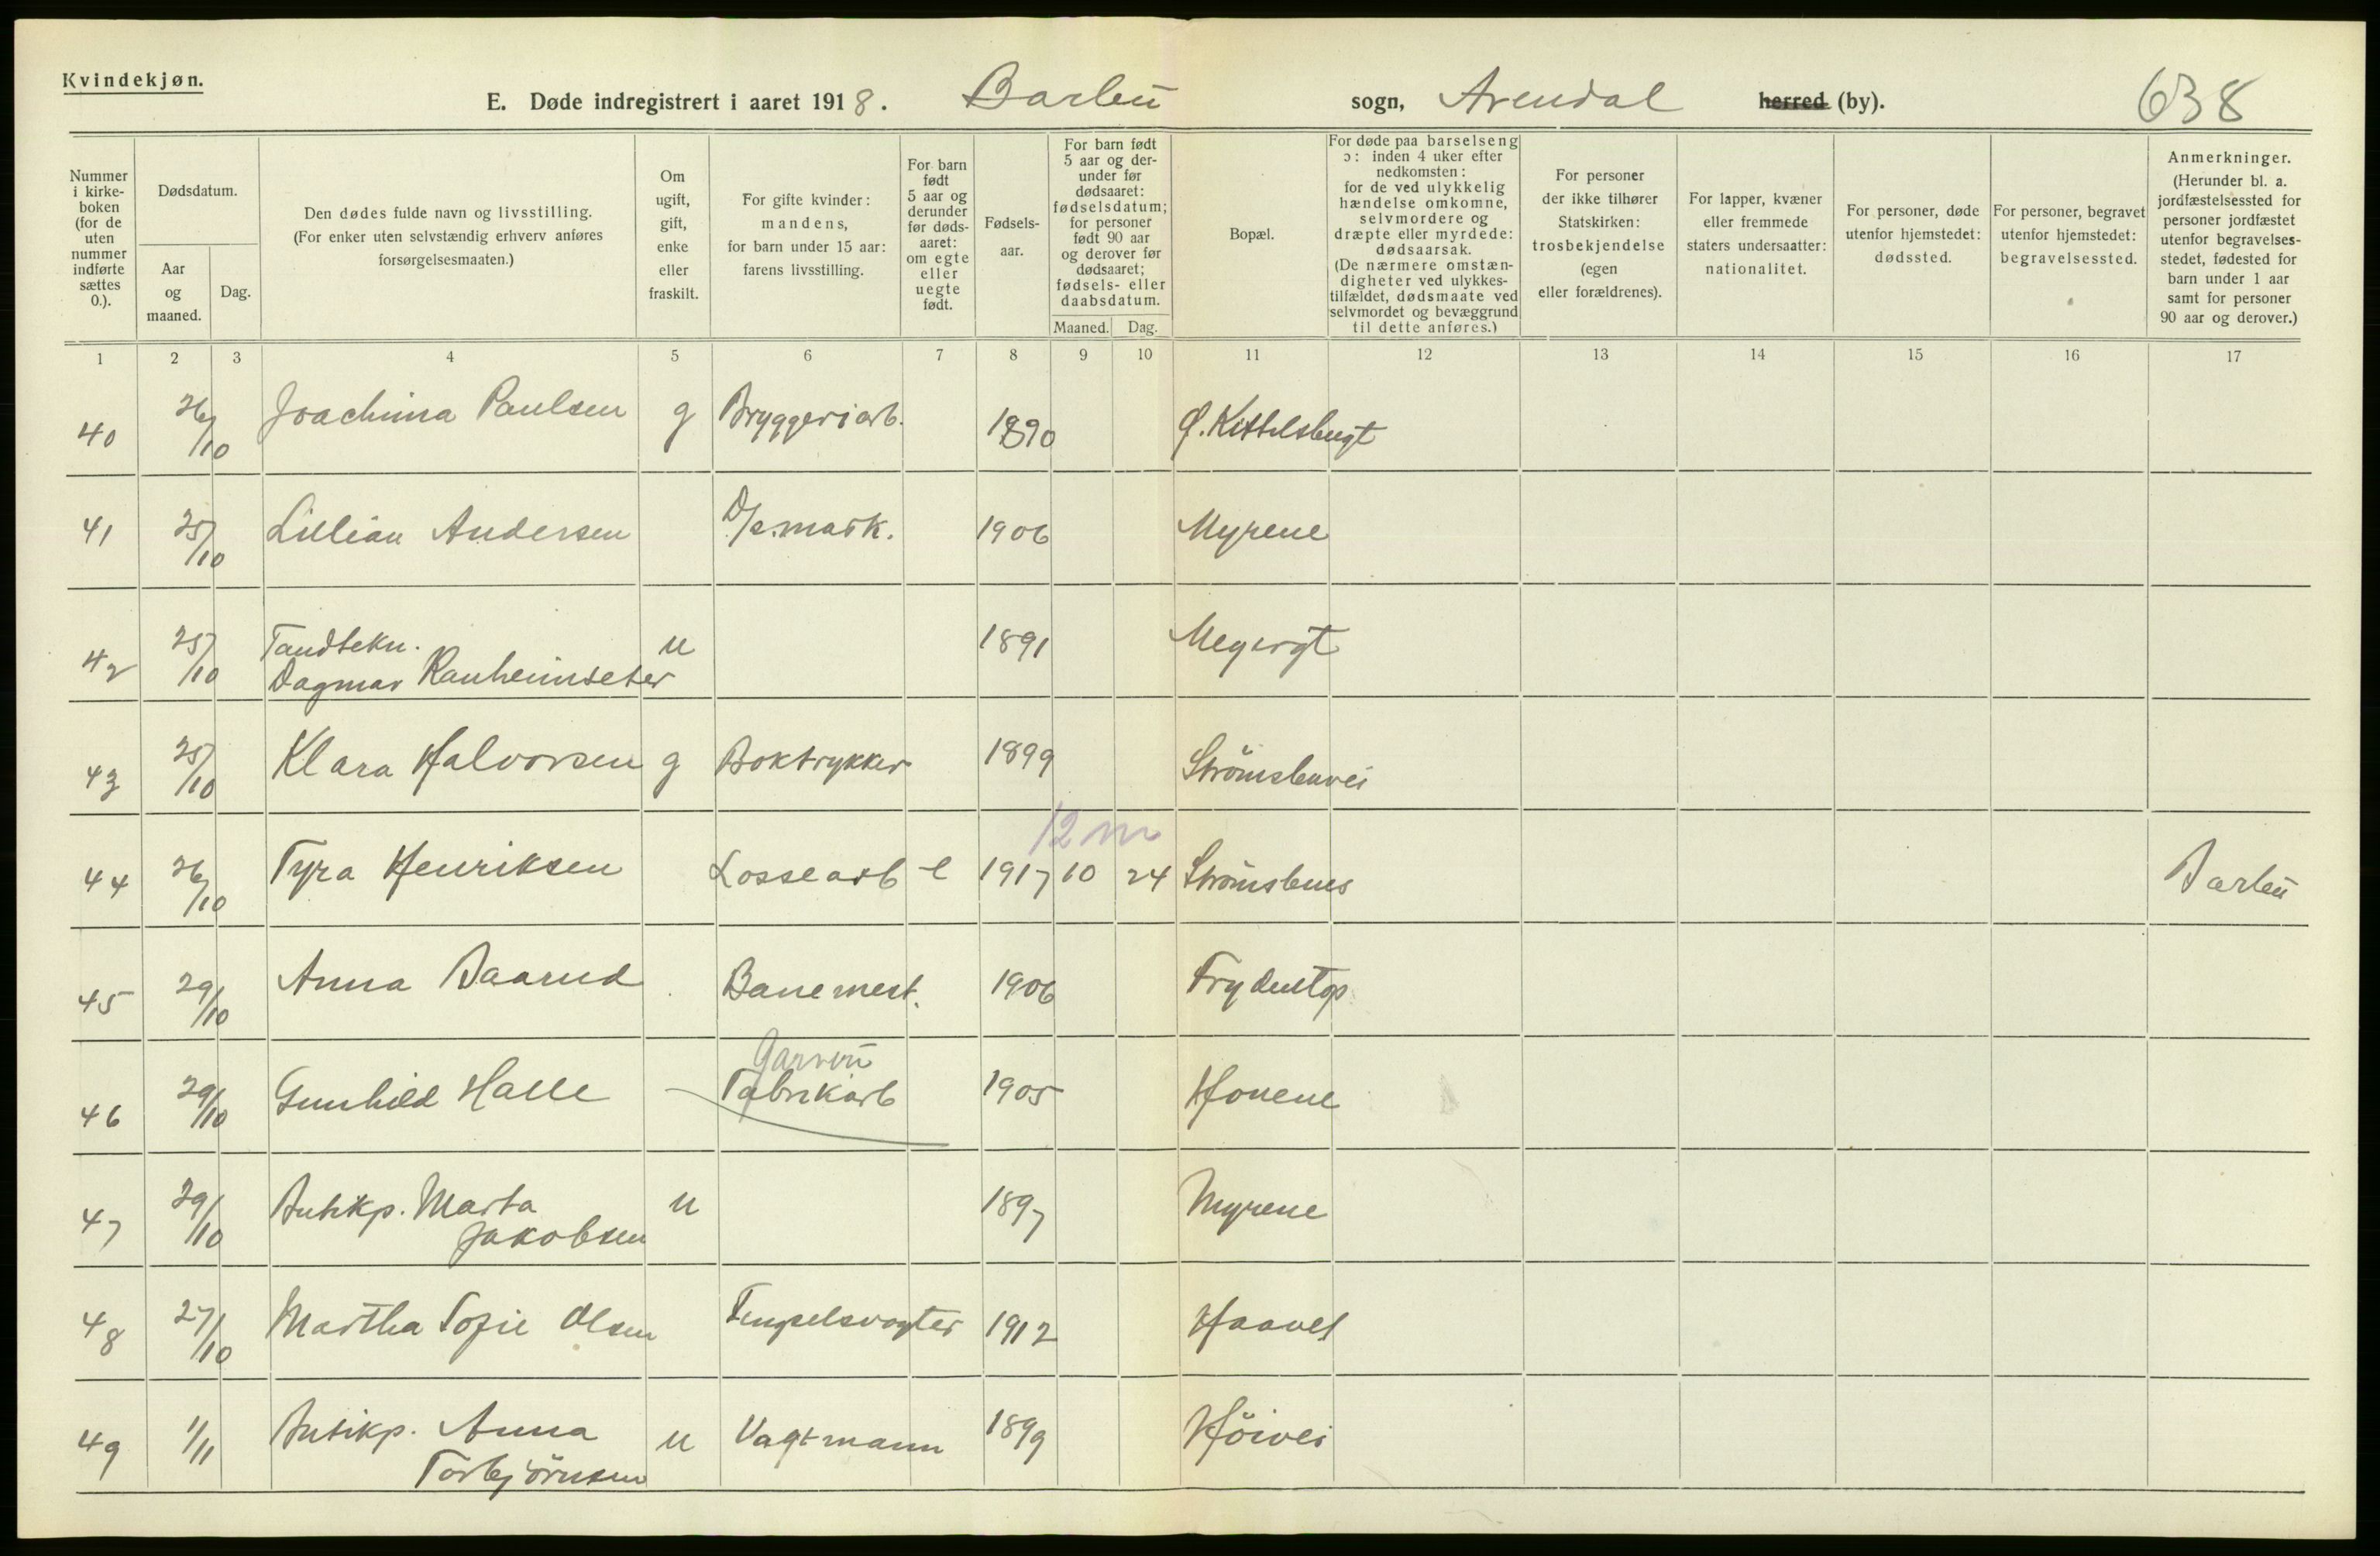 Kvindekjøn.
E. Døde indregistrert i aaret 1918. Barbu sogn, Arendal herred (by). 638
Nummer i kirkeboken (for de uten nummer indførte sættes 0.).
Dødsdatum.
Aar og maaned.
Dag.
Den dødes fulde navn og livsstilling.
(For enker uten selvstændig erhverv anføres forsørgelsesmaaten.)
Om ugift, gift, enke eller fraskilt.
For gifte kvinder: mandens, for barn under 15 aar: farens livsstilling.
For barn født 5 aar og derunder før dødsaaret: om egte eller uegte født.
Fødselsaar.
For barn født 5 aar og derunder før dødsaaret: fødselsdatum; for personer født 90 aar og derover før dødsaaret; fødsels- eller daabsdatum.
Maaned. Dag.
Bopæl.
For døde paa barselseng ɔ: inden 4 uker efter nedkomsten: for de ved ulykkelig hændelse omkomne, selvmordere og dræpte eller myrdede: dødsaarsak.
(De nærmere omstændigheter ved ulykkestilfældet, dødsmaate ved selvmordet og bevæggrund til dette anføres.)
For personer der ikke tilhører Statskirken: trosbekjendelse (egen eller forældrenes).
For lapper, kvæner eller fremmede staters undersaatter: nationalitet.
For personer, døde utenfor hjemstedet: dødssted.
For personer, begravet utenfor hjemstedet: begravelsessted.
Anmerkninger.
(Herunder bl. a. jordfæstelsessted for personer jordfæstet utenfor begravelsesstedet, fødested for barn under 1 aar samt for personer 90 aar og derover.)
1 2 3 4 5 6 7 8 9 10 11 12 13 14 15 16 17
40 26/10 Joachima Paulsen g Bryggeriarb. 1890 Ø. Kittelsbugt
41 25/10 Lillian Andersen D/s.mask. 1906 Myrene
42 25/10 Tandtekn. u 1891
Dagmar Ranheimseter
43 25/10 Klara Halvorsen g Boktrykker 1899 Strømsbuvei
12 m
44 26/10 Tyra Henriksen Lossearb e 1917 10 24 Strømsbu Barbu
45 29/10 Anna Baarud Banemest. 1906
Garveri
46 29/10 Gunhild Halle Fabrikarb 1905
47 29/10 Butikp. Marta u 1897 Myrene
Jakobsen
48 27/10 Martha Sofie Olsen Fengselsvogter 1912
49 1/11 Butikp. Anna u Vagtmann 1899 Høivei
Torbjørnsen